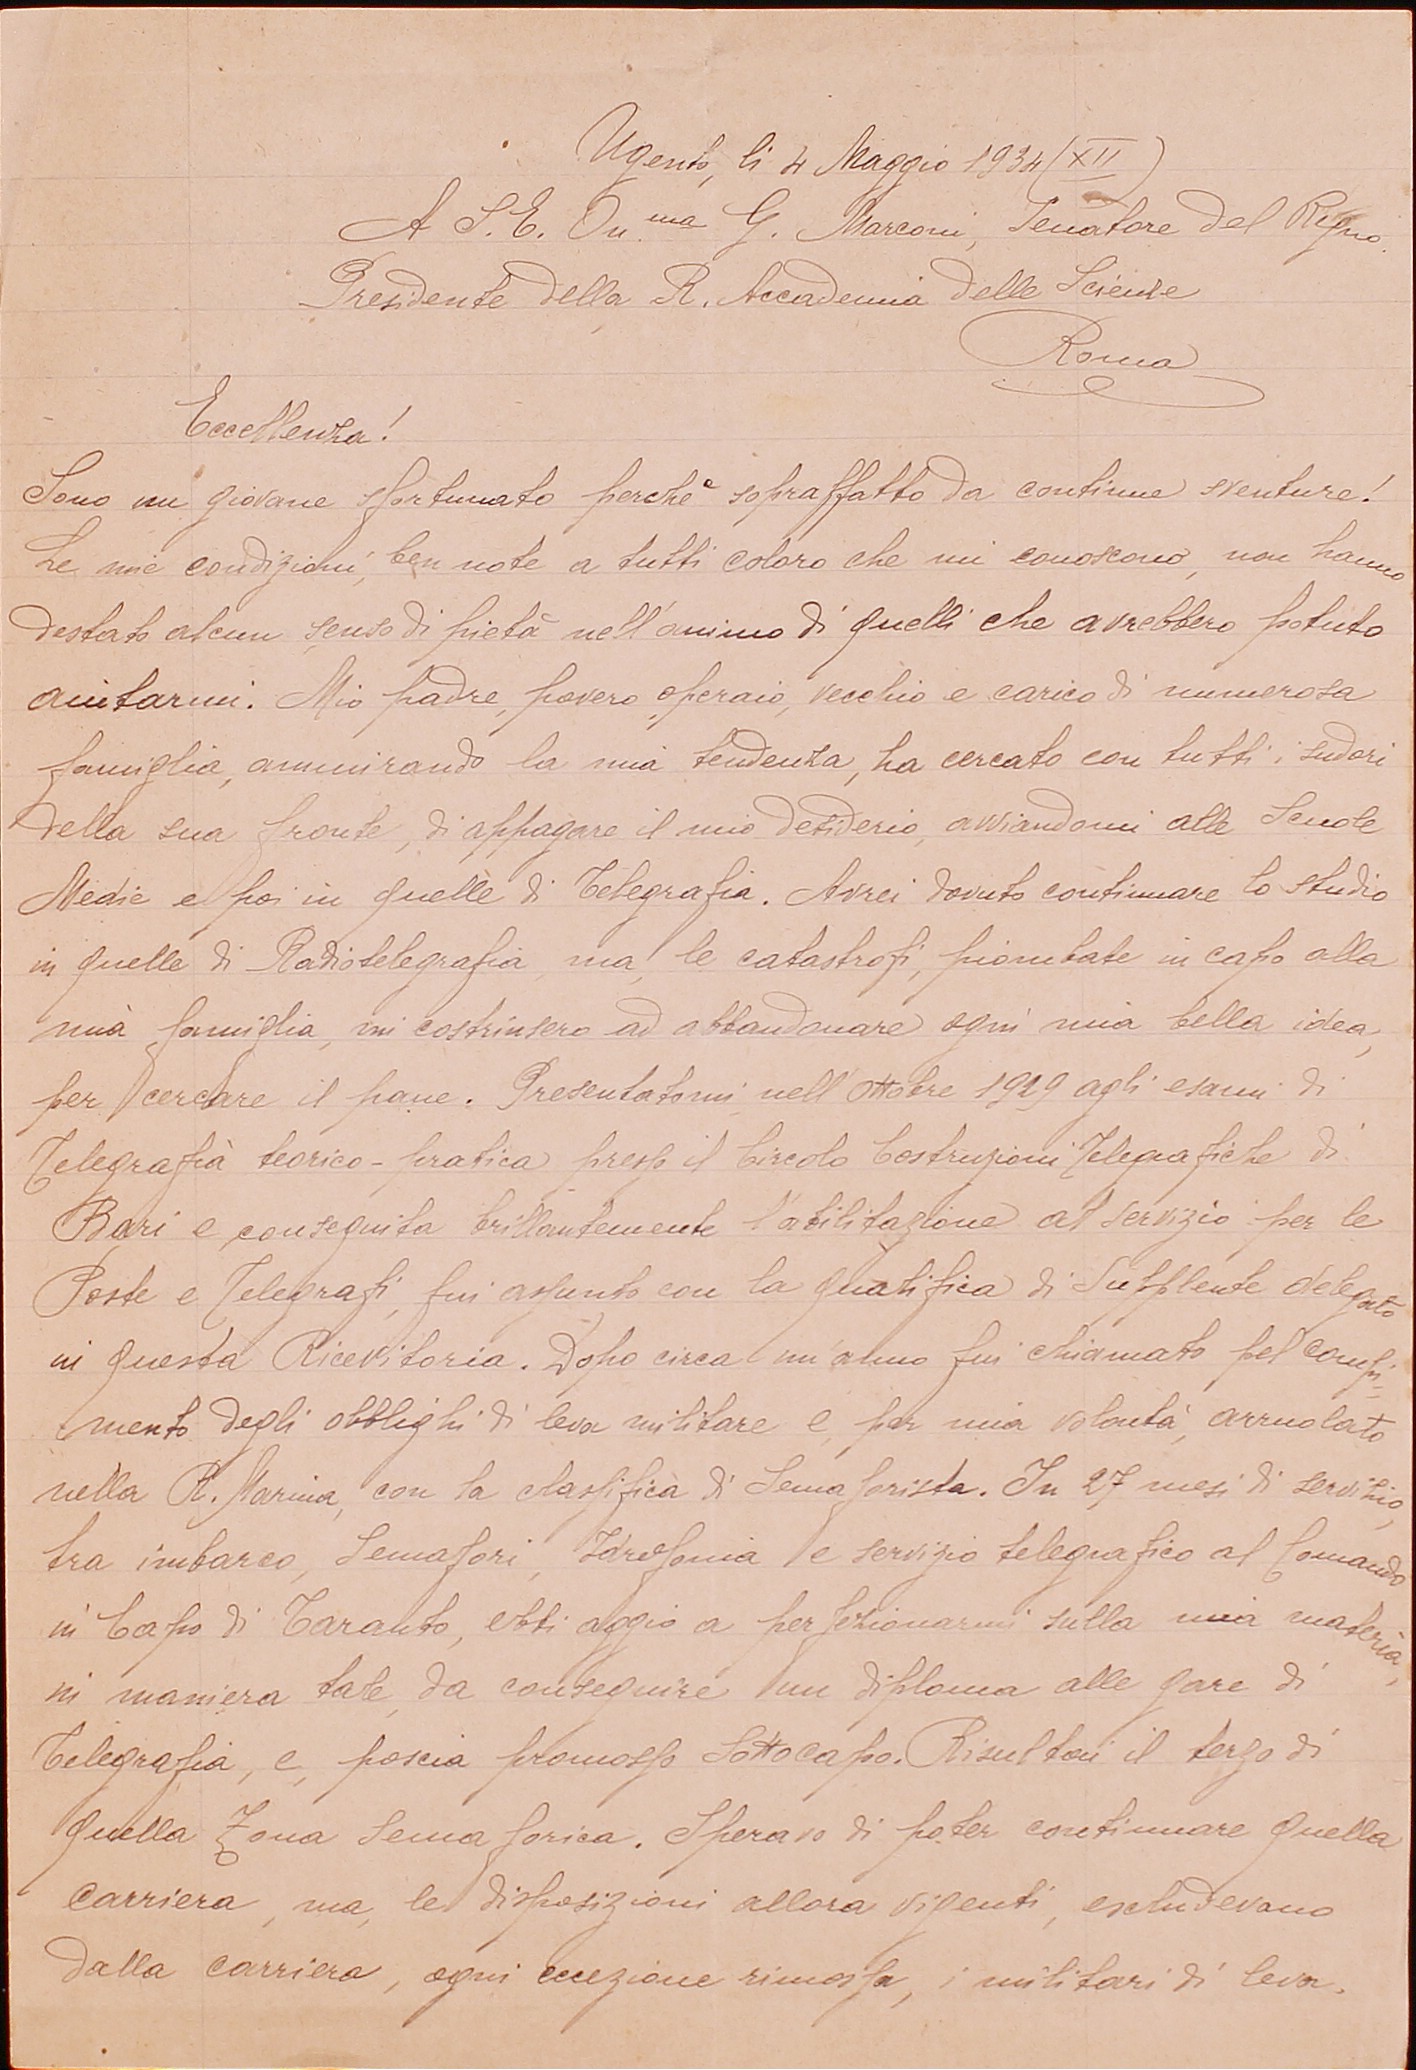 Ugento, li 4 Maggio 1934 (XII)
A S.E. On.ma G. Marconi, Senatore del Regno.
Presidente della R. Accademia delle Scienze
Roma
Eccellenza!
Sono un giovane sfortunato perchè sopraffatto da continue sventure!
Le mie condizioni, ben note a tutti coloro che mi conoscono, non hanno
destato alcun senso di pietà nell'animo di quelli che avrebbero potuto
aiutarmi. Mio padre, povero operaio, vecchio e carico di numerosa
famiglia, ammirando la mia tendenza, ha cercato con tutti i sudori
della sua fronte, di appagare il mio desiderio, avviandomi alle Scuole
Medie e poi in quelle di Telegrafia. Avrei dovuto continuare lo studio
in quelle di Radiotelegrafia, ma, le catastrofi, piombate in capo alla
mia famiglia, mi costrinsero ad abbandonare ogni mia bella idea,
per cercare il pane. Presentatomi nell'ottobre 1929 agli esami di
Telegrafia teorico-pratica presso il Circolo Costruzioni Telegrafiche di
Bari e conseguita brillantemente l'abilitazione al servizio per le
Poste e Telegrafi, fui assunto con la qualifica di Supplente delegato
in questa Ricevitoria. Dopo circa un'anno fui chiamato pel compi-
mento degli obblighi di leva militare e, per mia volontà, arruolato
nella R. Marina, con la classifica di Semaforista. In 27 mesi di servizio,
tra imbarco, Semafori, Idrofonia e servizio telegrafico al Comando
in Capo di Taranto, ebbi aggio a perfezionarmi sulla mia materia,
in maniera tale, da conseguire un diploma alle gare di
Telegrafia, e, poscia promosso Sottocapo. Risultai il terzo di
quella Zona Semaforica. Speravo di poter continuare quella
carriera, ma, le disposizioni allora vigenti, escludevano
dalla carriera, ogni eccezione rimossa, i militari di leva.